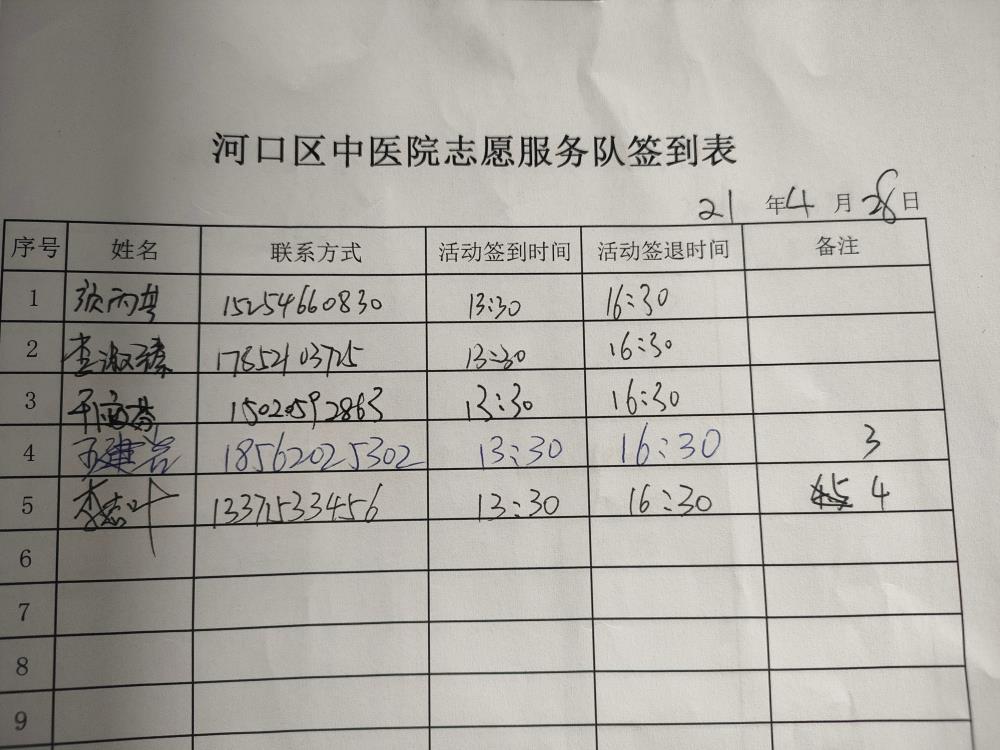 河口区中医院志愿服务队签到表
21 年 4 月 28 日
序号 姓名 联系方式 活动签到时间 活动签退时间 备注
1 15254660830 13:30 16:30
2 查淑臻 17852103725 13:30 16:30
3 15020592863 13:30 16:30
4 18562025302 13:30 16:30 3
5 李志叶 13371533456 13:30 16:30 4
6
7
8
9